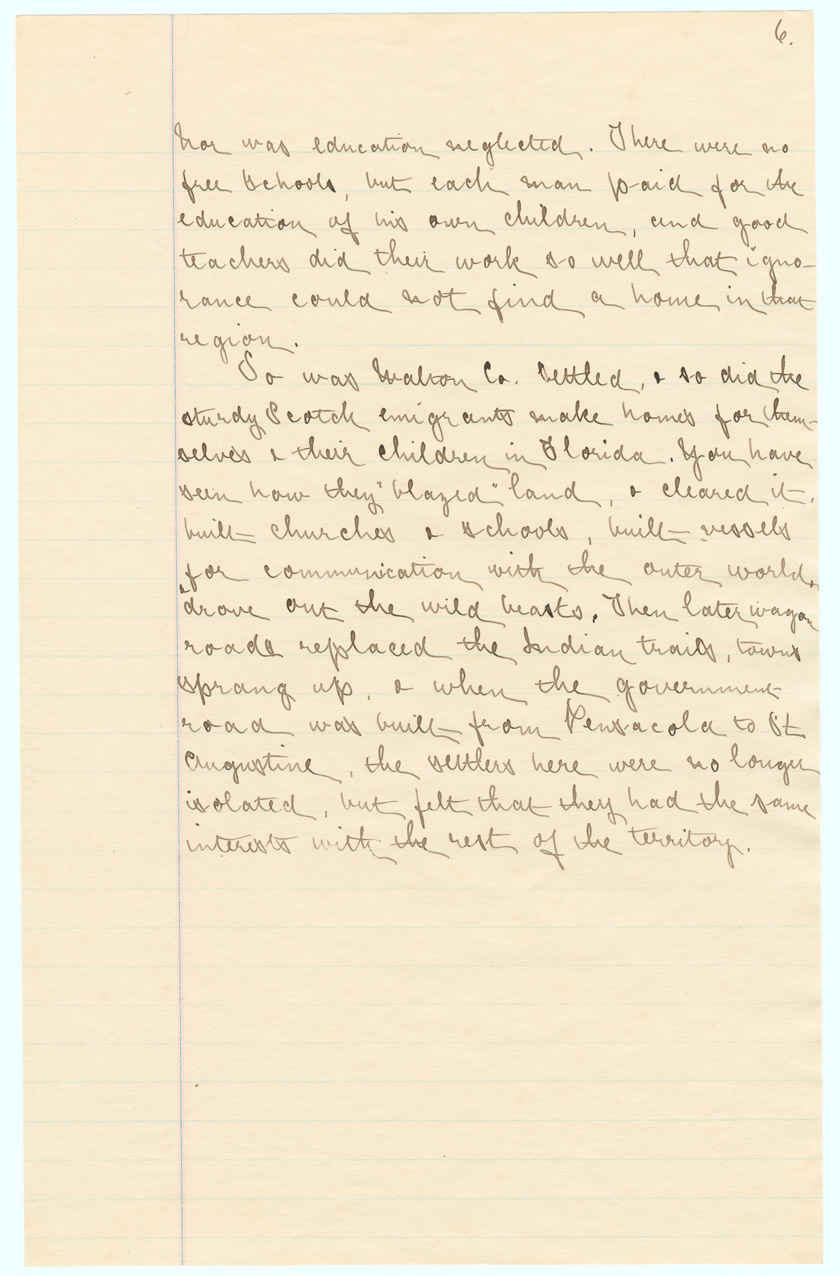 6.
Nor was education neglected. There were no
free schools, but each man paid for the
education of his own children, and good
teachers did their work so well that igno-
rance could not find a home in that
region.
So was Walton Co. settled, & so did the
sturdy Scotch emigrants make homes for them-
selves & their children in Florida. You have
seen how they "blazed" land, & cleared it,
built churches & schools, built vessels
for communication with the outer world,
& drove out the wild beasts. Then later wagon
roads replaced the Indian trails, towns
sprang up, & when the government
road was built from Pensacola to St
Augustine, the settlers here were no longer
isolated, but felt that they had the same
interests with the rest of the territory.